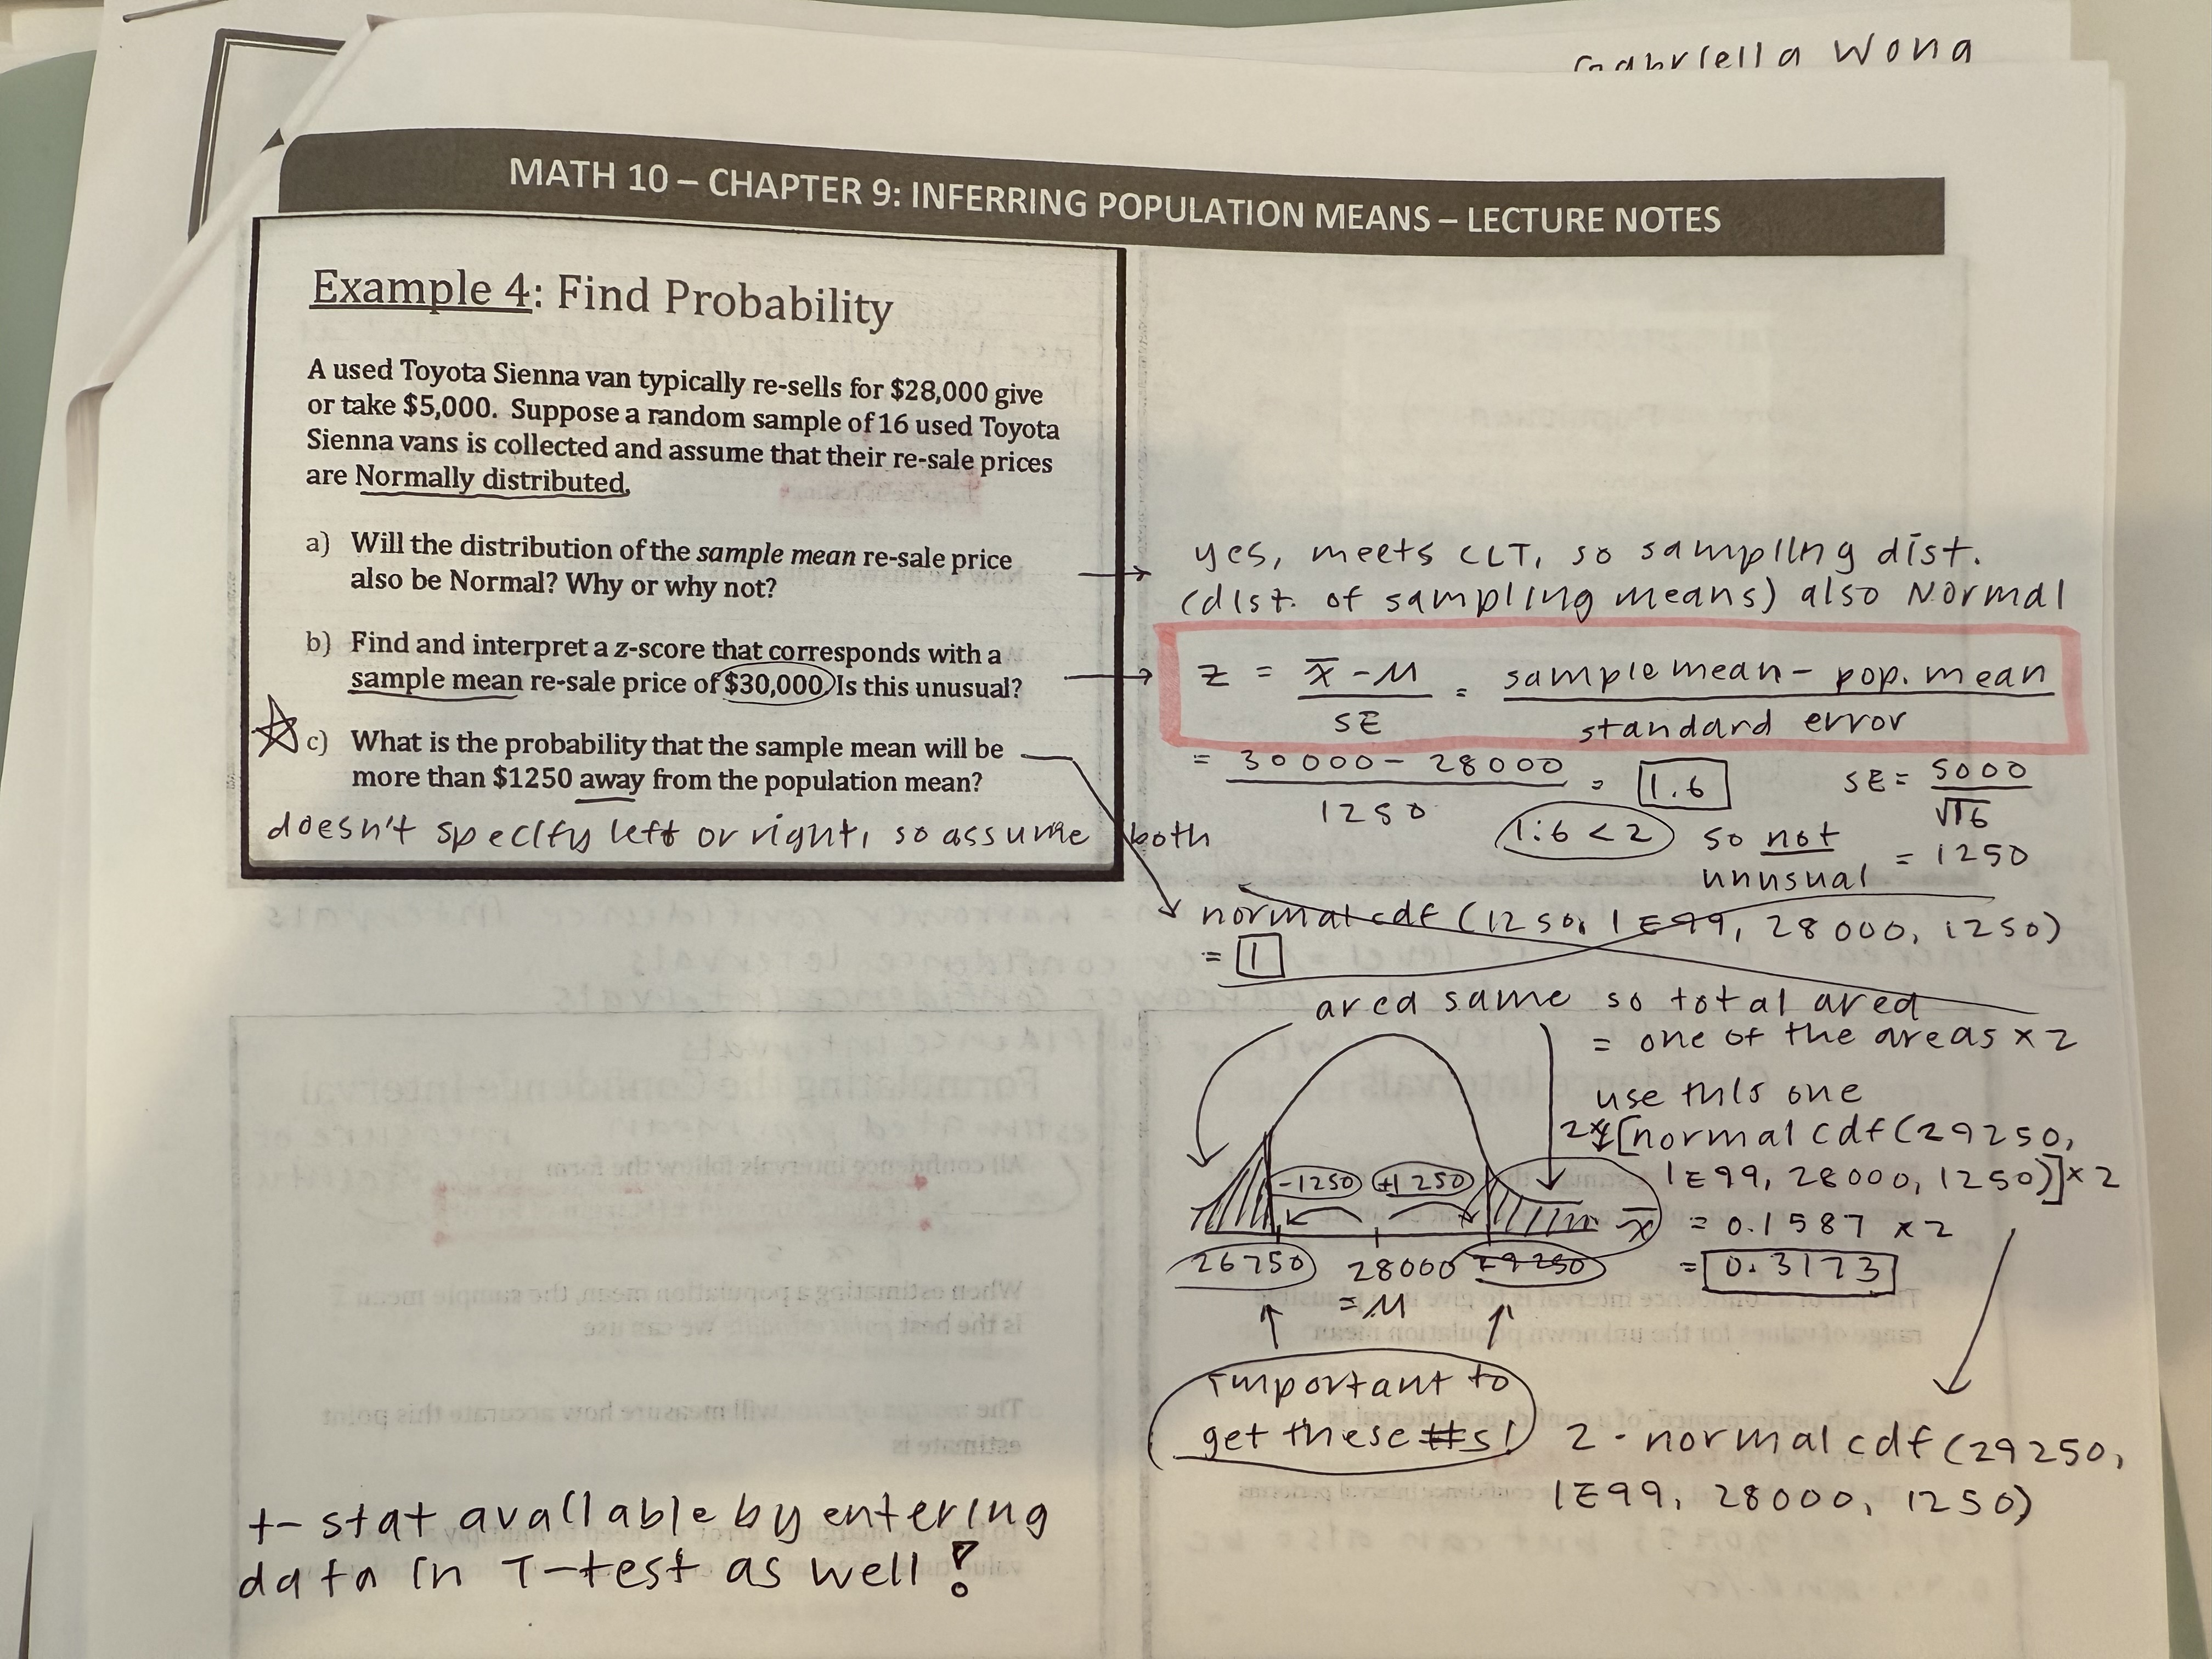 Gabriella Wong
MATH 10 – CHAPTER 9: INFERRING POPULATION MEANS – LECTURE NOTES
Example 4: Find Probability
A used Toyota Sienna van typically re-sells for $28,000 give
or take $5,000. Suppose a random sample of 16 used Toyota
Sienna vans is collected and assume that their re-sale prices
are Normally distributed.
a) Will the distribution of the sample mean re-sale price
also be Normal? Why or why not?
b) Find and interpret a z-score that corresponds with a
sample mean re-sale price of $30,000. Is this unusual?
c) What is the probability that the sample mean will be
more than $1250 away from the population mean?
doesn't specify left or right, so assume both
yes, meets CLT, so sampling dist.
(dist. of sampling means) also Normal
z = x̄ - μ / SE = sample mean - pop. mean / standard error
= 30000 - 28000 / 1250 = 1.6
SE = 5000 / √16
= 1250
1.6 < 2 so not
unusual
normalcdf (1250, 1E99, 28000, 1250)
= 1
area same so total area
= one of the areas × 2
use this one
2 [normalcdf(29250,
1E99, 28000, 1250)] × 2
= 0.1587 × 2
= 0.3173
-1250 +1250
x̄
26750 28000 29250
= μ
important to
get these #s!
2 · normalcdf(29250,
1E99, 28000, 1250)
t-stat available by entering
data in T-test as well!